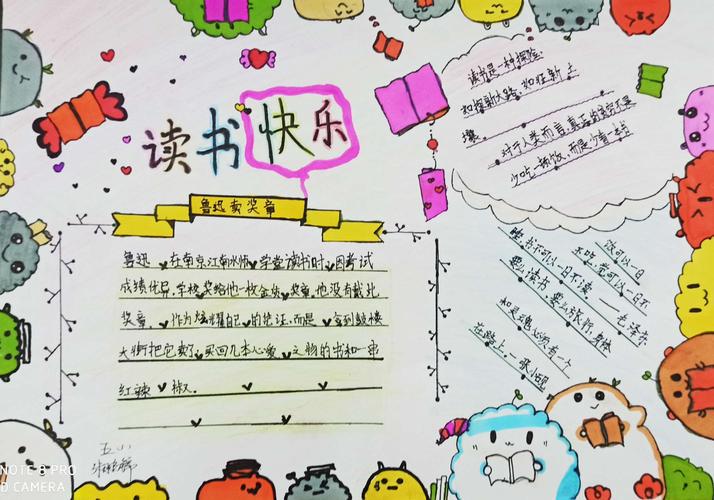 读书快乐
鲁迅卖奖章
鲁迅 在南京江南水师 学堂读书时 因考试
成绩优异,学校奖给他一枚金质 奖章,他没有戴此
奖章, 作为炫耀自己 的凭证,而是 拿到鼓楼
大街把它卖了,买回几本心爱 之物的书和一串
红辣 椒.
读书是一种探险
如探新大陆,如征新土
壤
对于人类而言,真正的贫穷不是
少吃一顿饭,而是少看一本书
饭可以一日
不吃,觉可以一日不
睡,书不可以一日不读——毛泽东
要么读书 要么旅行,身体
和灵魂必须有一个
在路上.—张小砚
五小
NOTE 8 PRO
D CAMERA